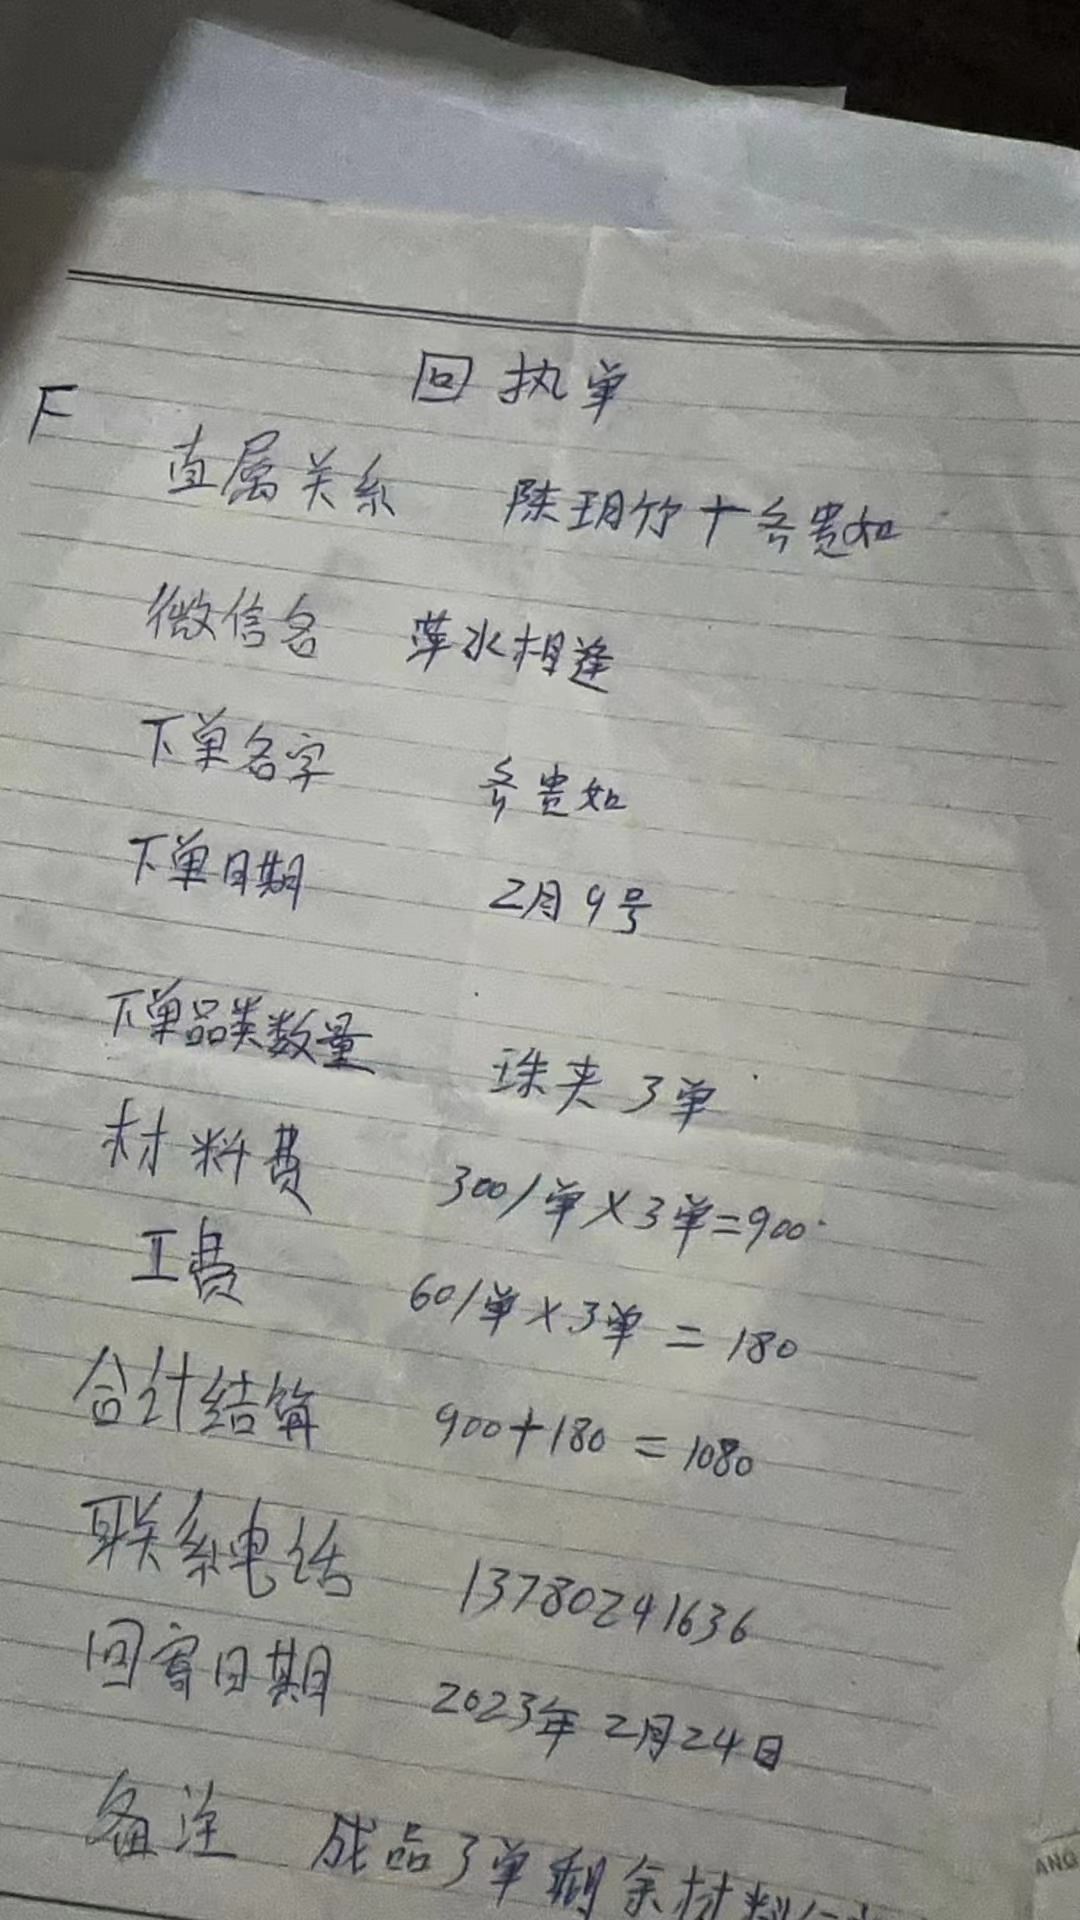 回执单
F
直属关系 陈玥竹+齐贵如
微信名 萍水相逢
下单名字 齐贵如
下单日期 2月9号
下单品类数量 珠夹3单
材料费 300/单×3单=900
工费 60/单×3单=180
合计结算 900+180=1080
联系电话 13780241636
回寄日期 2023年2月24日
备注 成品3单剩余材料
ANG